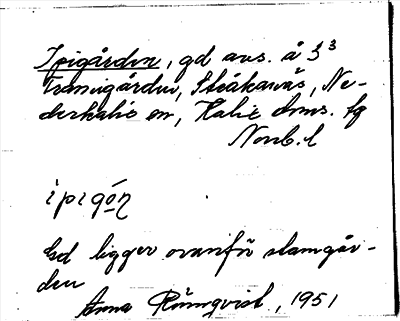 Ipigården, gd avs. å 3³
Framigården, Stråkanäs, Ne-
derkalix sn, Kalix dms. tg
Norrb. l
ipigón
Gd ligger ovanför stamgår-
den
Anna Rönnqvist, 1951